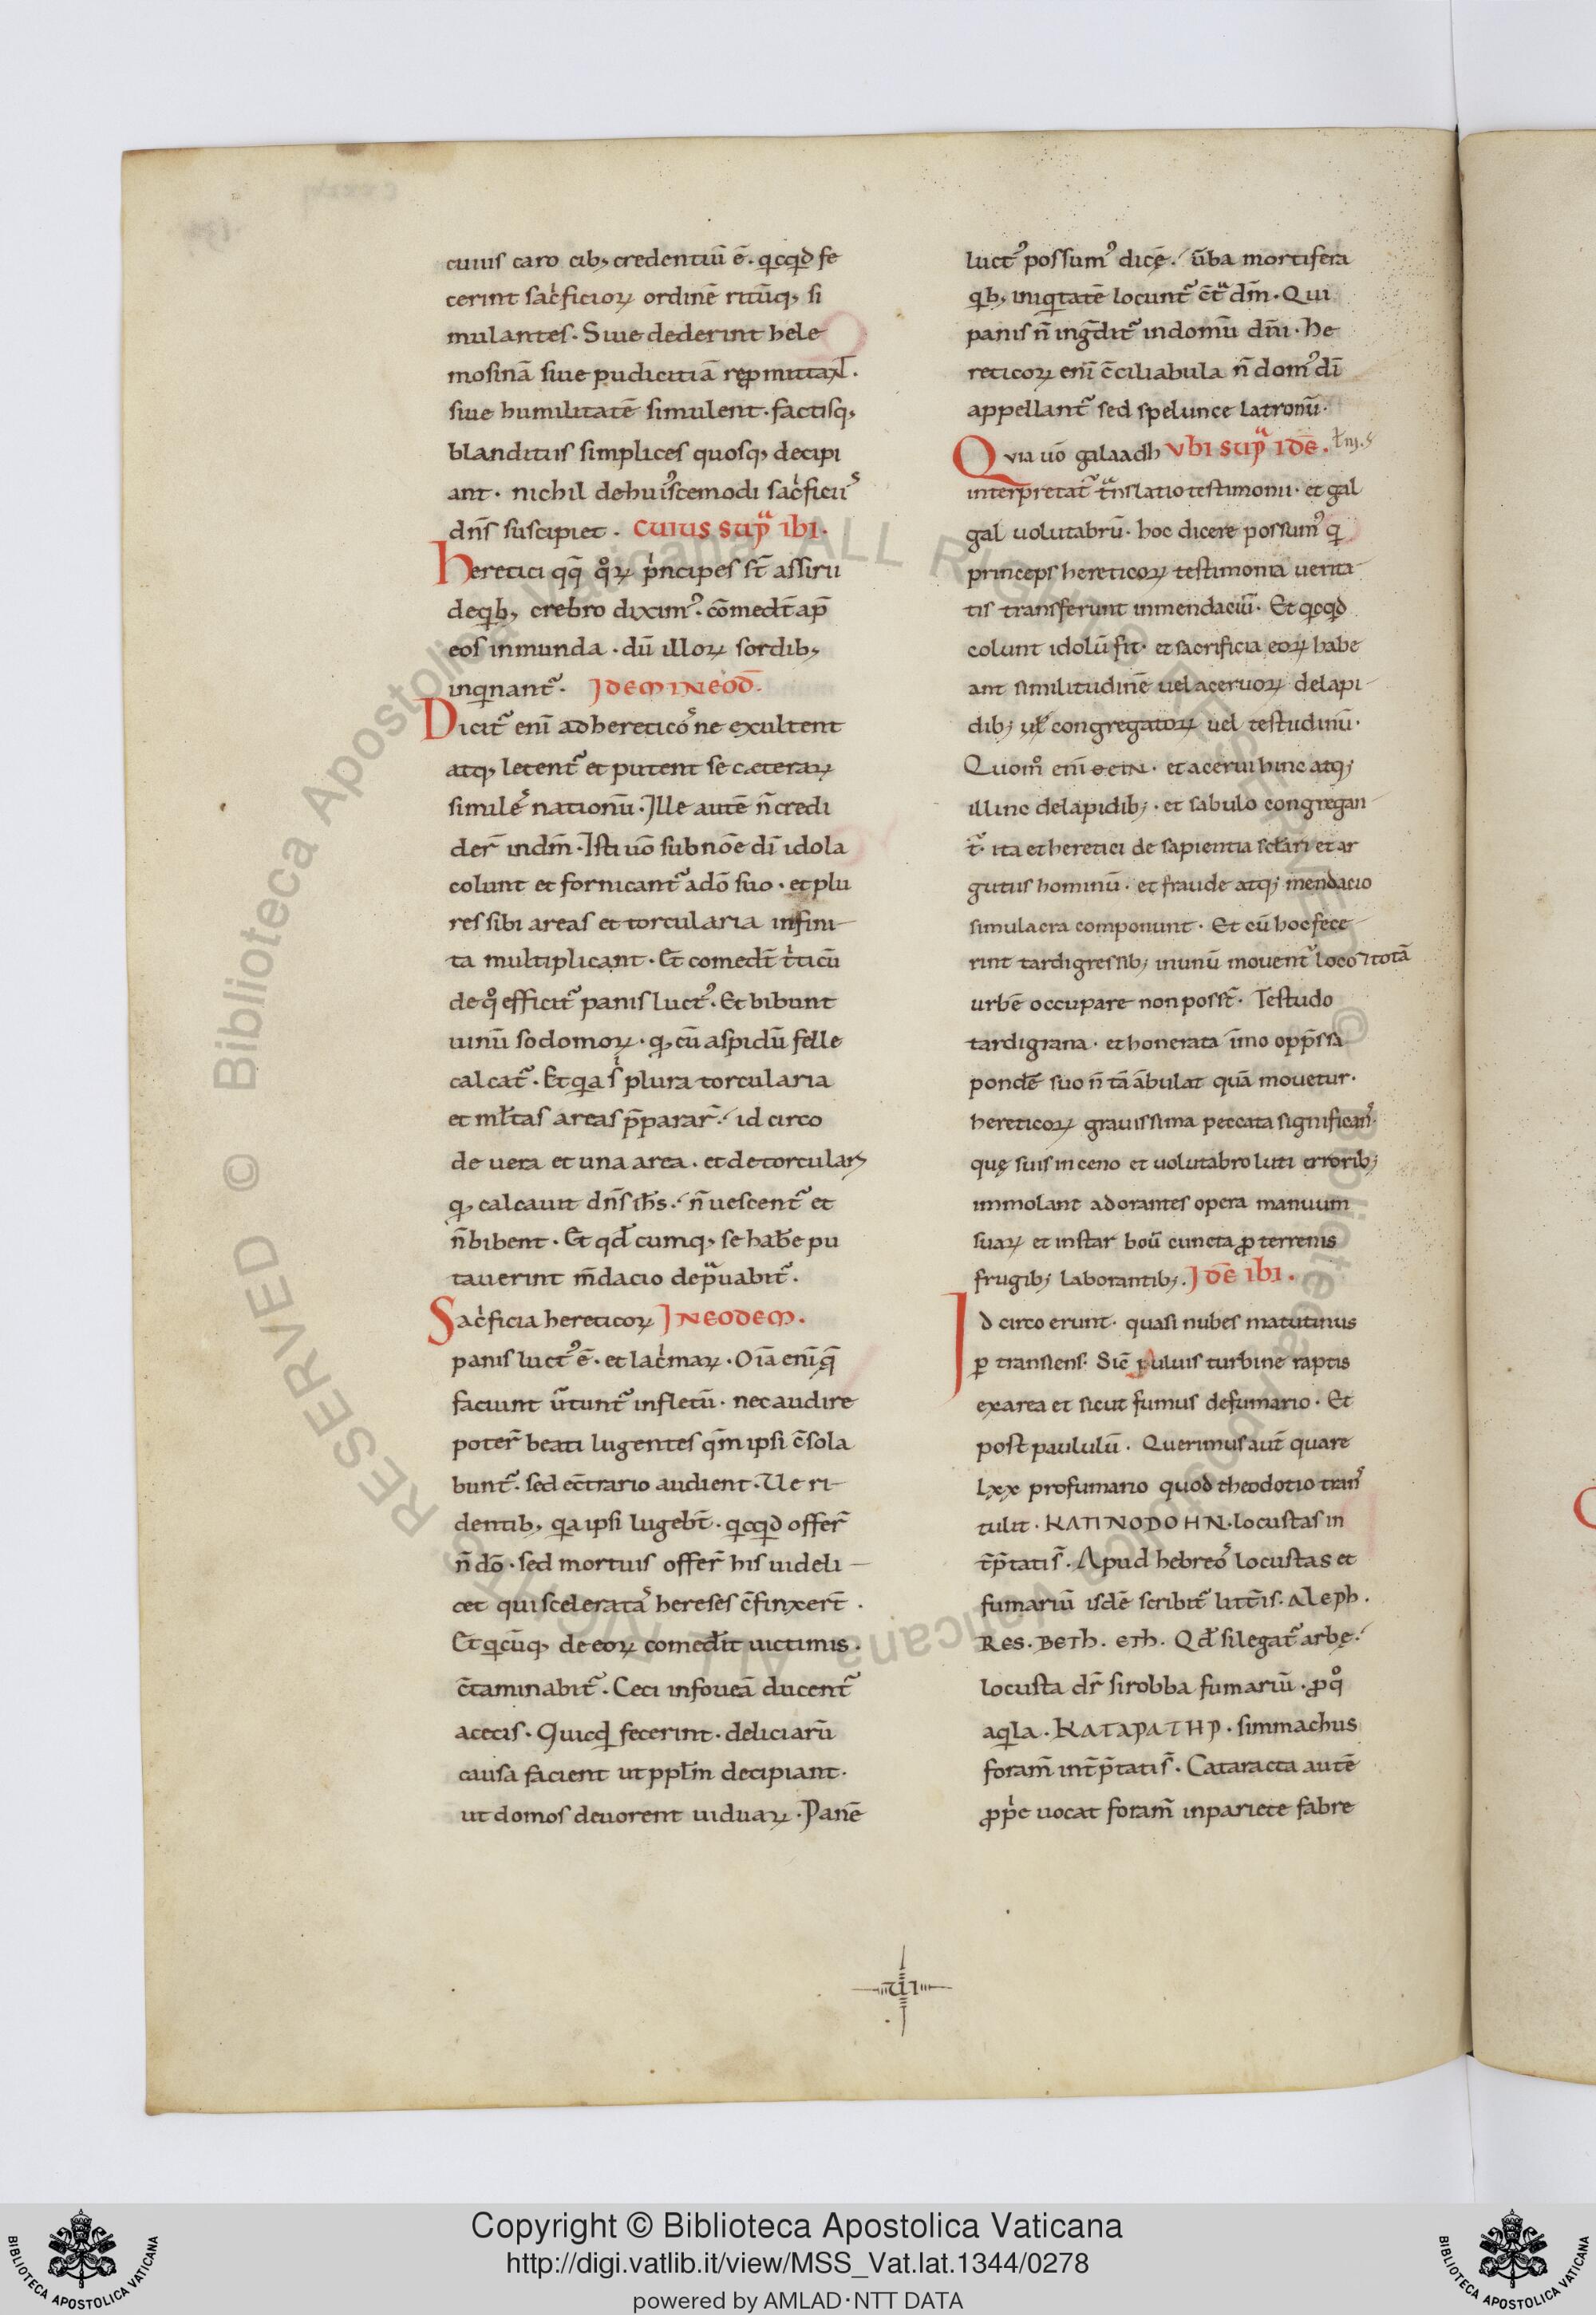 cuius caro cib, credentiū ē. qcqd fe
cerint sac̓ficioꝝ ordinē ritūq, si
mulantes. Siue dederint hele
mosinā siue pudicitiā
siue humilitatē simulent. factisq,
blanditiis simplices quosq, decipi
ant. nichil dehuiscemodi sac̓ficiis
dn̄s suscipiet. CUIUS SUPᵃ IBI.
heretici qq̄ qͦꝝ pͥncipes st̄ assirii
deqb, crebro diximꝰ. cōmedt̄ ap̄
eos inmunda. dū illoꝝ sordib,
inqnant᷑. IDEM IN EOD̄.
Dicit᷑ eni ad hereticoˢ ne exultent
atq, letent᷑ et putent se cæteraꝝ
similes nationū. Ille autē n̄ credi
der̄ indm̄. Isti uō sub nōe dī idola
colunt et fornicant᷑ adō suo. et plu
res sibi areas et torcularia infini-
ta multiplicant. Et comedt̄ tͥticū
de qͦ efficit᷑ panis luctꝰ. Et bibunt
uinū sodomoꝝ. q, cū aspidū felle
calcat᷑. Et qa sͥ plura torcularia
et ml̄tas areas p̄parar̄. id circo
de uera et una area. et de torculari
q, calcauit dn̄s ih̄s. n̄ uescent᷑ et
n̄ bibent. Et qd̄ cumq, se habe pu
tauerint m̄dacio depᵃuabit᷑.
Sac̓ficia hereticoꝝ IN EODEM.
panis luctꝰ ē. et lac̓maꝝ. Oīa eni q̄
faciunt ūtunt᷑ in fletū. nec audire
poter̄ beati lugentes qm̄ ipsi c̄sola
bunt᷑. sed ec̄trario audient. Ue ri-
dentib, qa ipsi lugebt̄. qcqd offer̄
n̄ dō. sed mortuis offer̄ his uideli-
cet qui sceleratas hereses c̄finxert̄.
Et qcūq, de eoꝝ comedit uictimis.
c̄taminabit᷑. Ceci in foueā ducent᷑
acecis. Quicqd fecerint. deliciarū
causa facient ut ppl̄m decipiant.
ut domos deuorent uiduaꝝ. Panē
luctꝰ possumꝰ dicę. ūba mortifera
qb, iniqtatē locunt᷑ c̄tᵃ dm̄. Qui
panis n̄ ingdit᷑ in domū dn̄i. he
reticoꝝ eni c̄ciliabula n̄ domꝰ dī
appellant᷑ sed spelunce latronū.
Quia uō galaadh UBI SUPᵃ IDĒ.
interpretat᷑ tᵃnslatio testimonii. et gal
gal uolutabrū. hoc dicere possumꝰ q
princeps hereticoꝝ testimonia uerita-
tis transferunt in mendaciū. Et qcqd
colunt idolū sit. et sacrificia eoꝝ habe
ant similitudinē uel aceruoꝝ de lapi-
dib; ul̄ congregatoꝝ uel testudinū.
Quomͦ eni ΘΕΙΝ. et acerui hinc atq;
illinc de lapidib;. et sabulo congregan-
t᷑. ita et heretici de sapientia sclari et ar
gutiis hominū. et fraude atq; mendacio
simulacra componunt. Et cū hoc fece-
rint tardigressib; in unū mouent᷑ loco ⁊ totā
urbē occupare non posst̄. Testudo
tardigrana. et honerata imo opp̄ssa
pondē suo n̄ tā ābulat quā mouetur.
hereticoꝝ grauissima peccata significans.
quę suis in ceno et uolutabro luti errorib;
immolant adorantes opera manuum
suaꝝ et instar boū cuncta ꝓ terrenis
frugib; laborantib;. IDĒ IBI.
Id circo erunt. quasi nubes matutinus
ꝑ transiens. Sic̄ puluis turbine raptis
ex area et sicut fumus de fumario. Et
post paululū. Querimus aut̄ quare
lxx pro fumario quod theodotio trans
tulit. ΚΑΠΝΟDΟΗΝ. locustas in
t̄p̄tati s̄. Apud hebreos locustas et
fumariū isdē scribit᷑ litt̄is. Aleph.
Res. BETH. ETH. Qd̄ si legat᷑ arbę.
locusta dr̄ si robba fumariū. ꝓ qͦ
aqila. ΚΑΤΑΡΑΤΗΡ. simmachus
foram̄ int̄p̄tati s̄. Cataracta autē
ꝓpͥe uocat foram̄ in pariete fabre
Copyright © Biblioteca Apostolica Vaticana
http://digi.vatlib.it/view/MSS_Vat.lat.1344/0278
powered by AMLAD·NTT DATA
BIBLIOTECA APOSTOLICA VATICANA
BIBLIOTECA APOSTOLICA VATICANA